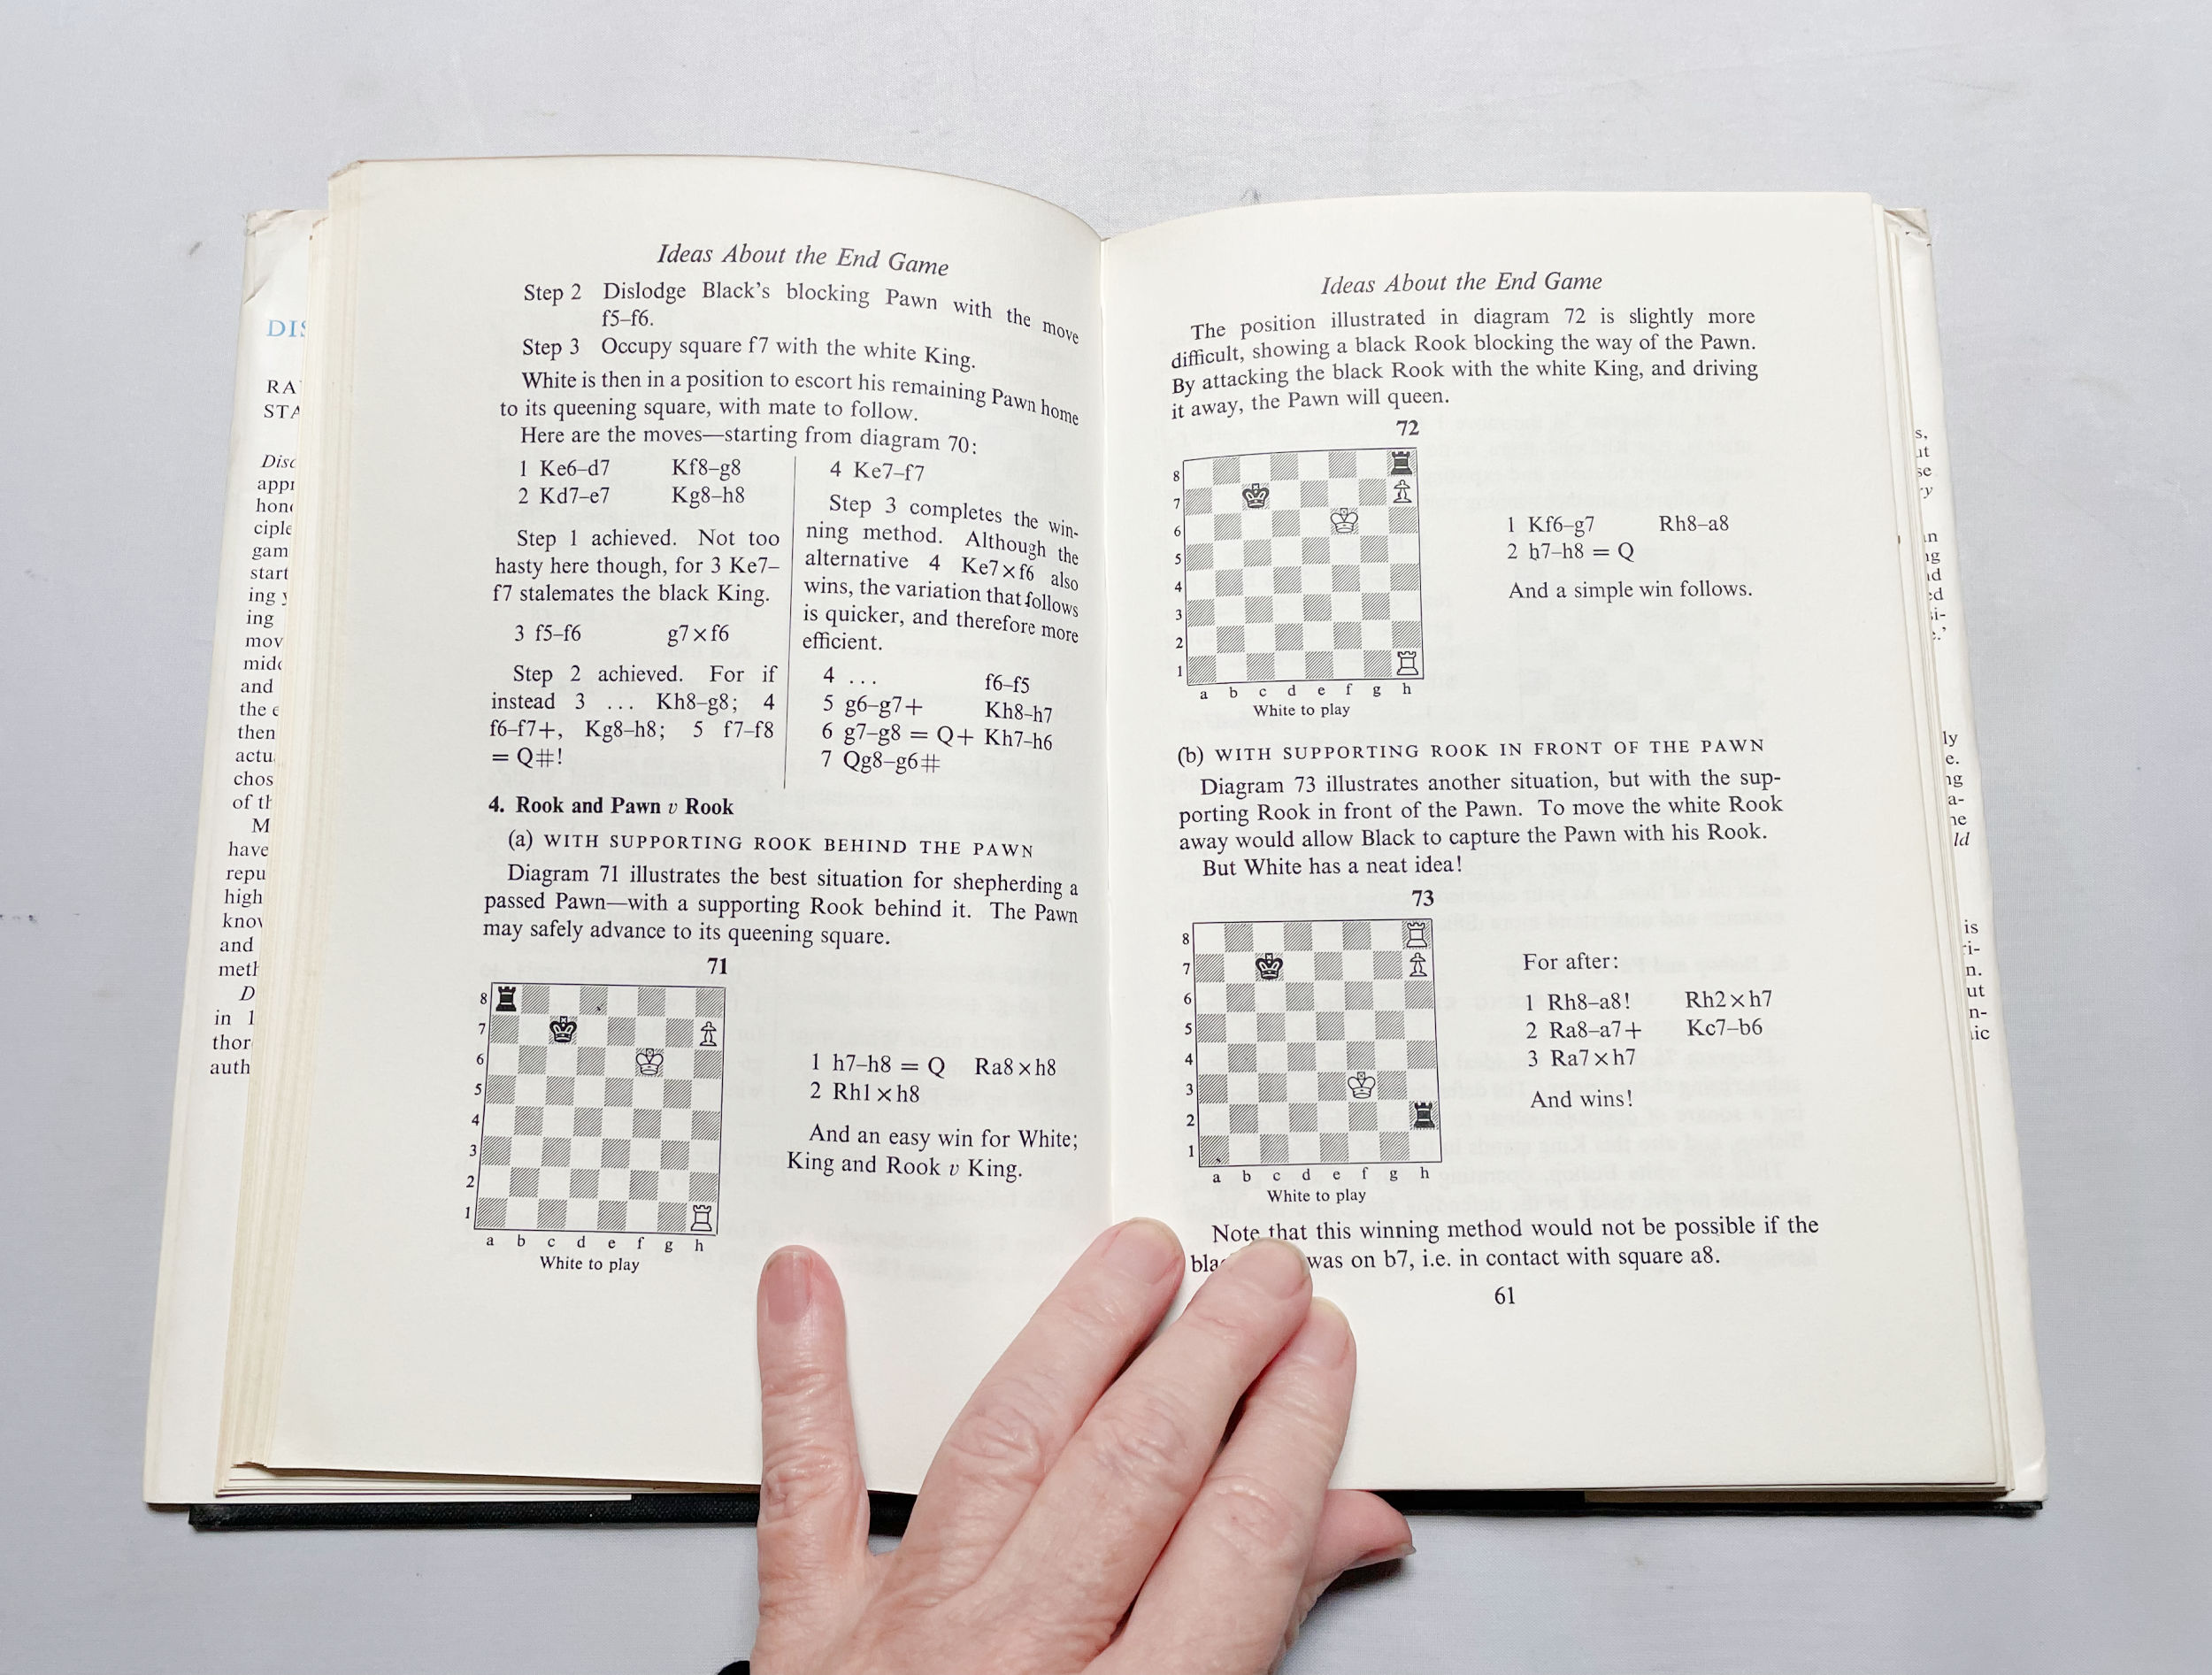 Ideas About the End Game
Step 2 Dislodge Black's blocking Pawn with the move
f5–f6.
Step 3 Occupy square f7 with the white King.
White is then in a position to escort his remaining Pawn home
to its queening square, with mate to follow.
Here are the moves—starting from diagram 70:
1 Ke6–d7 Kf8–g8
2 Kd7–e7 Kg8–h8
Step 1 achieved. Not too
hasty here though, for 3 Ke7–
f7 stalemates the black King.
3 f5–f6 g7×f6
Step 2 achieved. For if
instead 3 ... Kh8–g8; 4
f6–f7+, Kg8–h8; 5 f7–f8
= Q#!
4 Ke7–f7
Step 3 completes the win-
ning method. Although the
alternative 4 Ke7×f6 also
wins, the variation that follows
is quicker, and therefore more
efficient.
4 ... f6–f5
5 g6–g7+ Kh8–h7
6 g7–g8 = Q+ Kh7–h6
7 Qg8–g6#
4. Rook and Pawn v Rook
(a) WITH SUPPORTING ROOK BEHIND THE PAWN
Diagram 71 illustrates the best situation for shepherding a
passed Pawn—with a supporting Rook behind it. The Pawn
may safely advance to its queening square.
71
8
7
6
5
4
3
2
1
a b c d e f g h
White to play
1 h7–h8 = Q Ra8×h8
2 Rh1×h8
And an easy win for White;
King and Rook v King.
Ideas About the End Game
The position illustrated in diagram 72 is slightly more
difficult, showing a black Rook blocking the way of the Pawn.
By attacking the black Rook with the white King, and driving
it away, the Pawn will queen.
72
8
7
6
5
4
3
2
1
a b c d e f g h
White to play
1 Kf6–g7 Rh8–a8
2 h7–h8 = Q
And a simple win follows.
(b) WITH SUPPORTING ROOK IN FRONT OF THE PAWN
Diagram 73 illustrates another situation, but with the sup-
porting Rook in front of the Pawn. To move the white Rook
away would allow Black to capture the Pawn with his Rook.
But White has a neat idea!
73
8
7
6
5
4
3
2
1
a b c d e f g h
White to play
For after:
1 Rh8–a8! Rh2×h7
2 Ra8–a7+ Kc7–b6
3 Ra7×h7
And wins!
Note that this winning method would not be possible if the
was on b7, i.e. in contact with square a8.
61